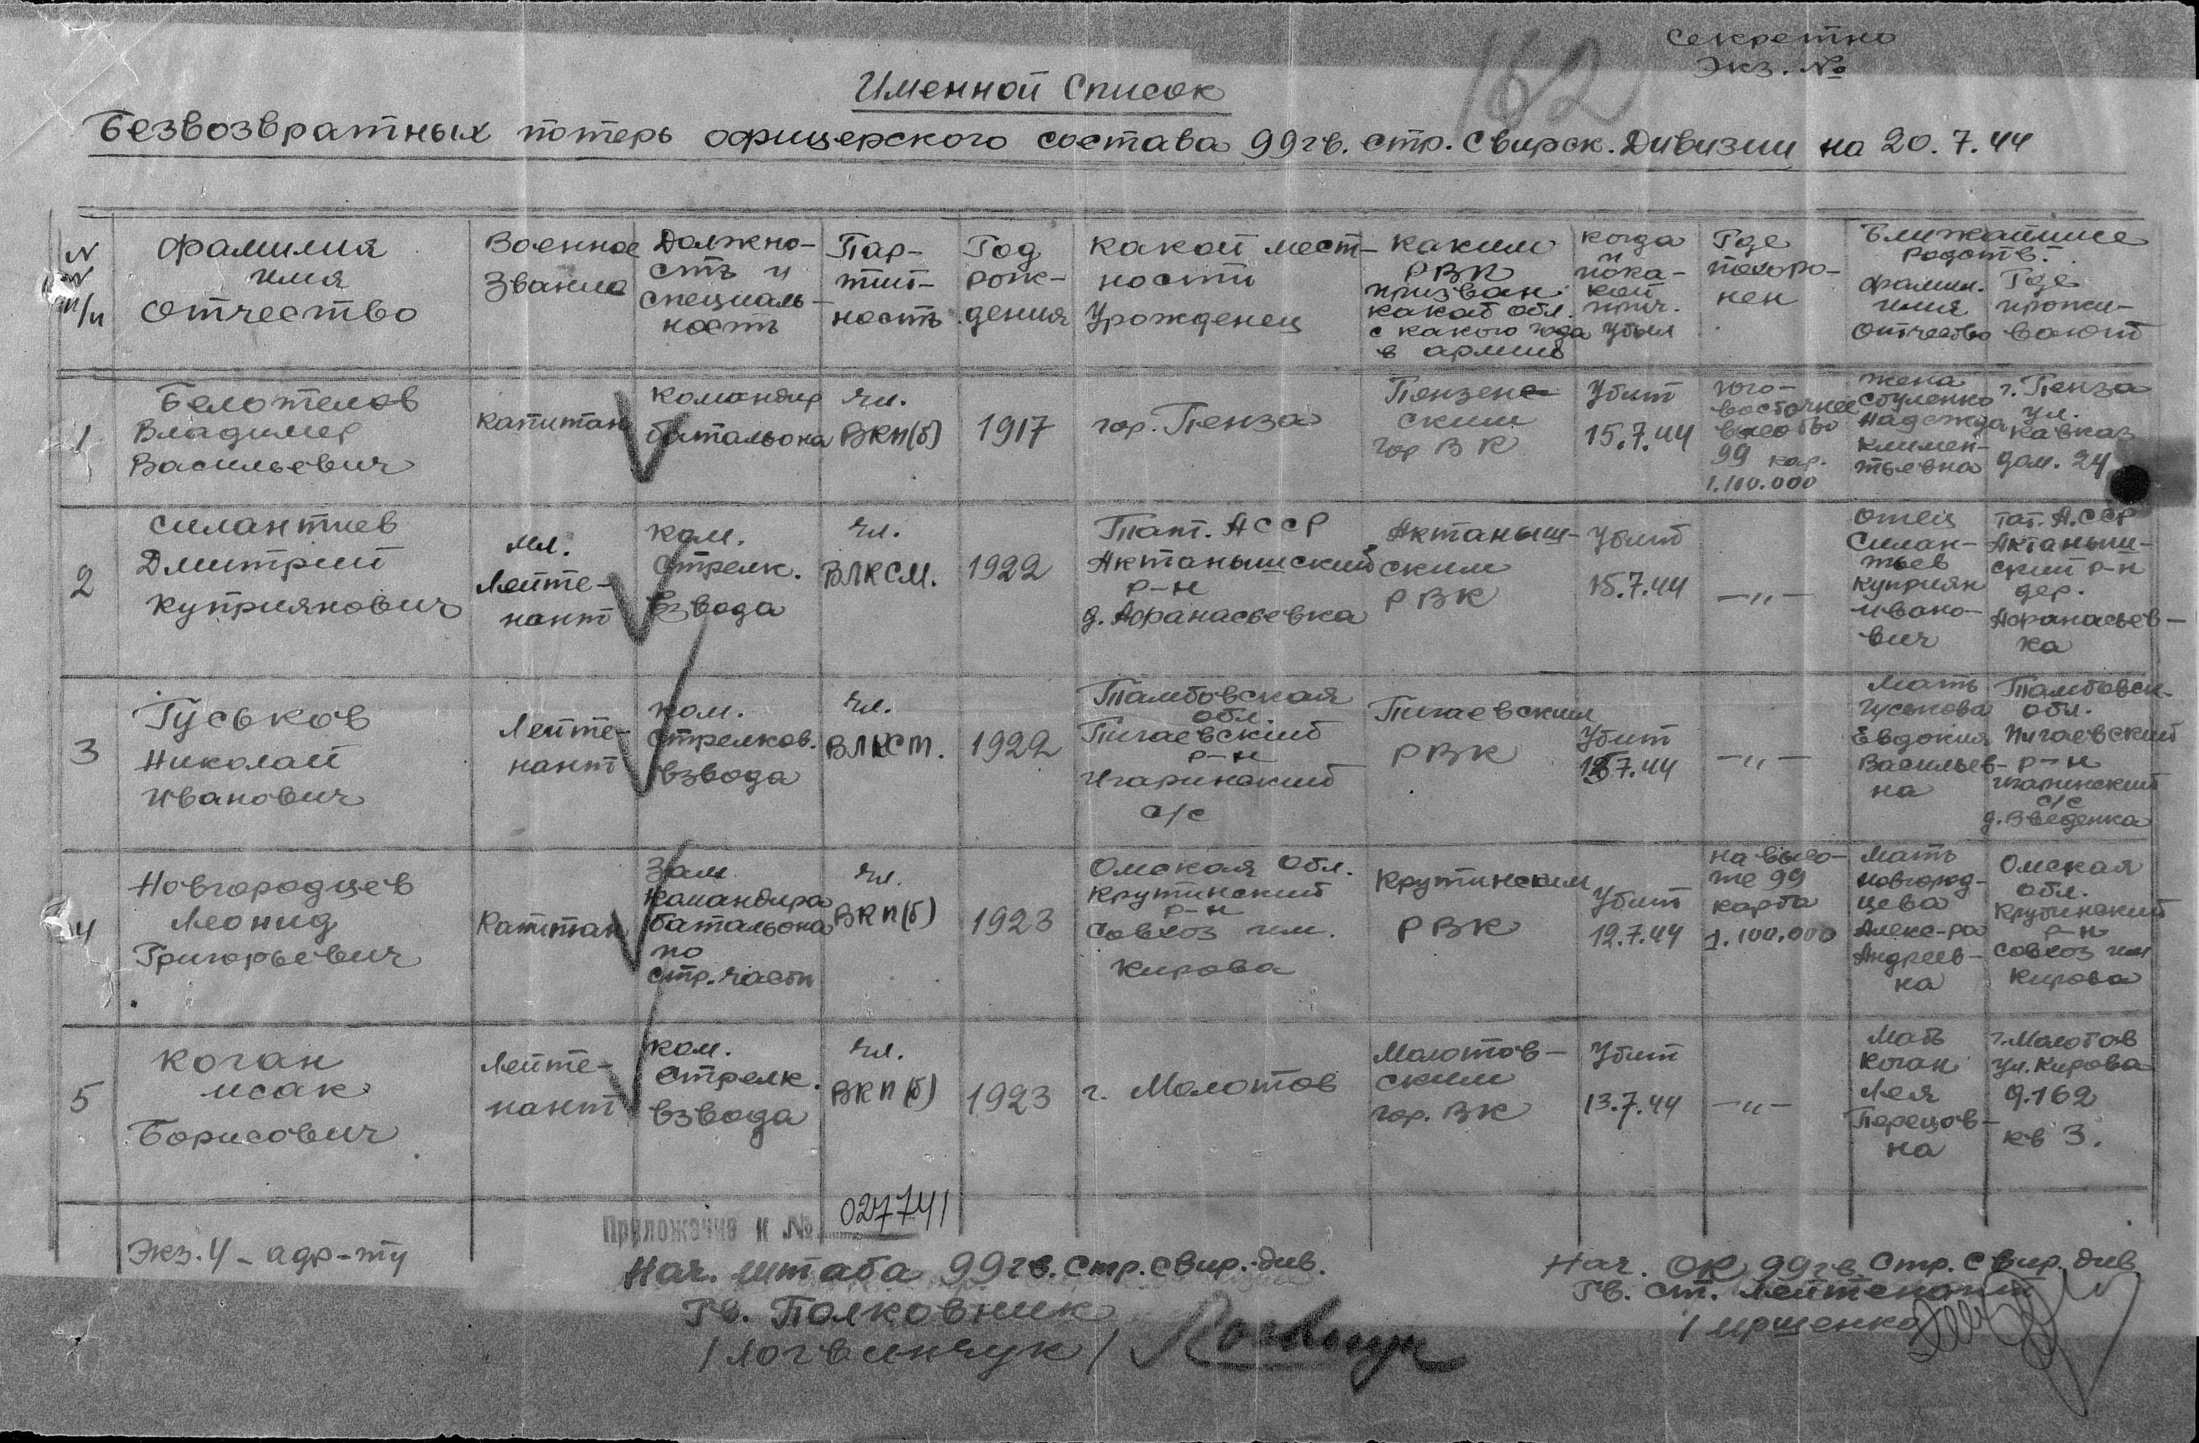 Секретно
Экз. №
162
Именной Список
Безвозвратных потерь офицерского состава 99 гв. стр. Свирск. Дивизии на 20.7.44
№ № п/п
Фамилия имя отчество
Военное Звание
Должность и специальность
Партийность
Год рождения
Какой местности Урожденец
Каким РВК призван какой обл. с какого года в армии
Когда и по какой прич. убыл
Где похоронен
Ближайшие родств.
Фамил. имя отчество
Где проживают
1
Белотелов
Владимер
Васильевич
Капитан
Командир
батальона
Чл.
ВКП(б)
1917
гор. Пенза
Пензен-
ским
гор ВК
Убит
15.7.44
юго-
восточнее
высоты
99 кар.
1.100.000
жена
Надежда
Климен-
тьевна
г. Пенза
ул.
Кавказ
дом. 24
2
Силантиев
Дмитрий
Куприянович
Мл.
Лейте-
нант
Ком.
Стрелк.
взвода
Чл.
ВЛКСМ.
1922
Тат. АССР
Актанышский
р-н
д. Афанасьевка
Актаныш-
ским
РВК
Убит
15.7.44
—"—
отец
Силан-
тьев
Куприян
Ивано-
вич
Тат. А.ССР
Актаныш-
ский р-н
дер.
Афанасьев-
ка
3
Гуськов
Николай
Иванович
Лейте-
нант
Ком.
Стрелков.
взвода
Чл.
ВЛКСМ.
1922
Тамбовская
обл.
Пичаевский
р-н
с/с
Пичаевским
РВК
Убит
—"—
Мать
Гуськова
Евдокия
Васильев-
на
Тамбовск.
обл.
Пичаевский
р-н
с/с
д. Введенка
4
Новгородцев
Леонид
Григорьевич
Капитан
Зам.
Командира
батальона
по
стр. части
Чл.
ВКП(б)
1923
Омская обл.
Крутинский
р-н
Совхоз им.
Кирова
Крутинским
РВК
Убит
12.7.44
на высо-
те 99
карта
1.100.000
Мать
Новгород-
цева
Алекс-ра
Андреев-
на
Омская
обл.
Крутинский
р-н
совхоз им
Кирова
5
Коган
Исак
Борисович
Лейте-
нант
Ком.
Стрелк.
взвода
Чл.
ВКП(б)
1923
г. Молотов
Молотов-
ским
гор. ВК
Убит
13.7.44
—"—
Мать
Коган
Лея
Перецов-
на
г. Молотов
ул. Кирова
д. 162
кв 3.
Приложение к № 027741
Экз. 4 - адр-ту
Нач. штаба 99 гв. Стр. Свир. див.
Гв. Полковник
/Логвинчук/
Нач. ОК 99 гв Стр. Свир. див
Гв. ст. Лейтенант
/Иршенко